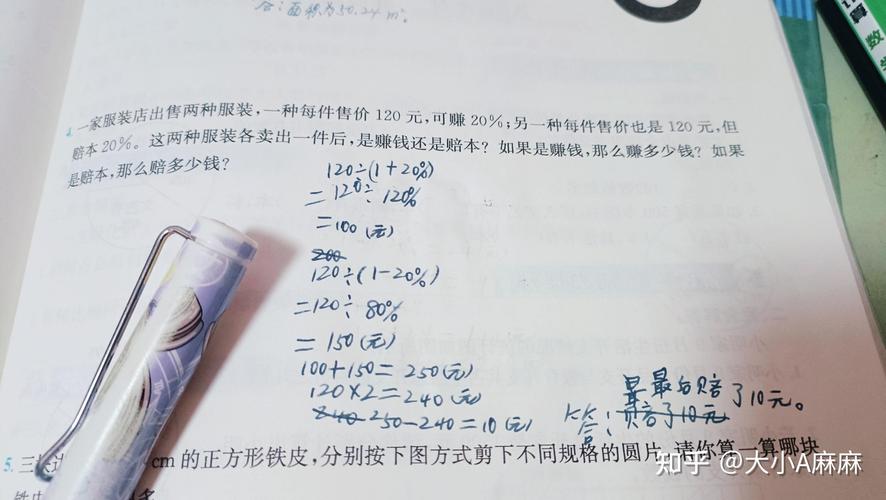 答:面积为50.24m²。
算
数
4.一家服装店出售两种服装,一种每件售价120元,可赚20%;另一种每件售价也是120元,但
赔本20%。这两种服装各卖出一件后,是赚钱还是赔本?如果是赚钱,那么赚多少钱?如果
是赔本,那么赔多少钱?
120÷(1+20%)
=120÷120%
=100(元)
200
120÷(1-20%)
=120÷80%
=150(元)
100+150=250(元)
120×2=240(元)
240 250-240=10(元)
最后赔了10元。
答:赔了10元
cm的正方形铁皮,分别按下图方式剪下不同规格的圆片,请你算一算哪块
知乎 @大小A麻麻